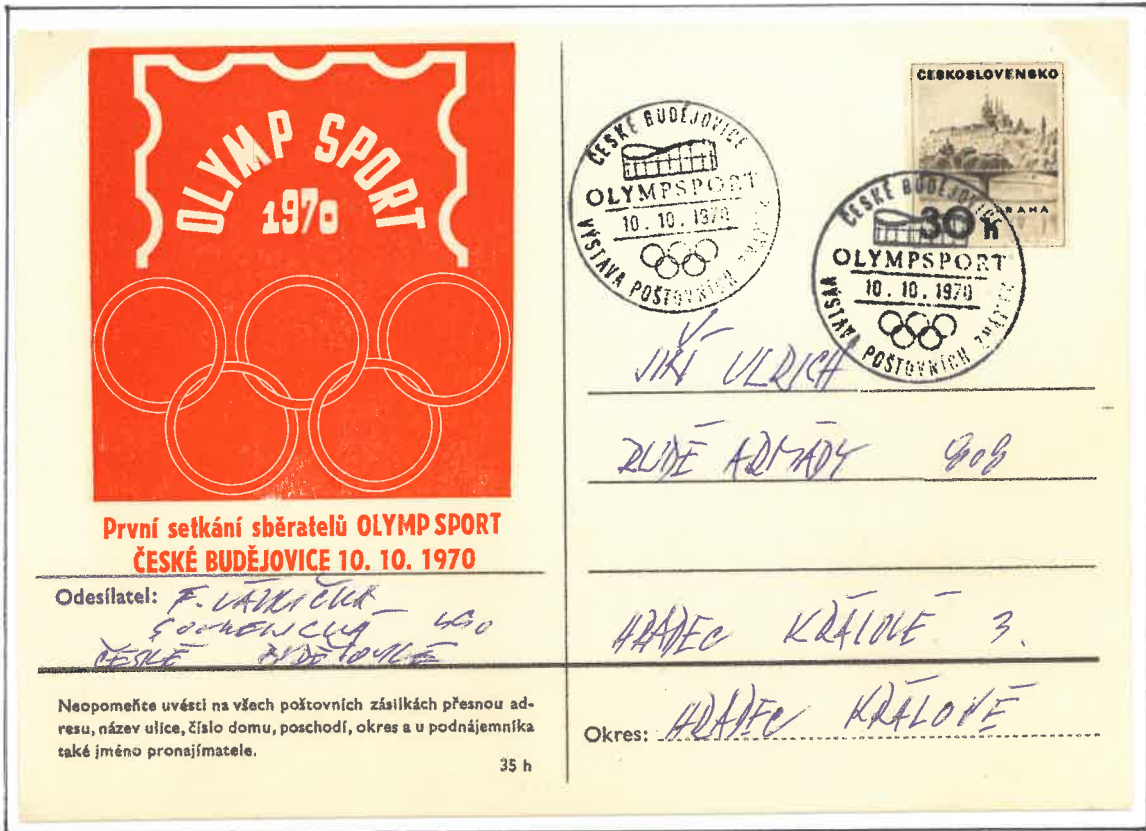 OLYMP SPORT
1970
První setkání sběratelů OLYMP SPORT
ČESKÉ BUDĚJOVICE 10. 10. 1970
Odesílatel: F.
ČESKÉ BUDĚJOVICE
Neopomeňte uvésti na všech poštovních zásilkách přesnou ad-
resu, název ulice, číslo domu, poschodí, okres a u podnájemníka
také jméno pronajímatele.
35 h
ČESKÉ BUDĚJOVICE
OLYMPSPORT
10. 10. 1970
VÝSTAVA POŠTOVNÍCH ZNÁMEK
ČESKOSLOVENSKO
PRAHA
30 h
ČESKÉ BUDĚJOVICE
OLYMPSPORT
10. 10. 1970
VÝSTAVA POŠTOVNÍCH ZNÁMEK
JIŘÍ ULRICH
RUDÉ ARMÁDY 808
HRADEC KRÁLOVÉ 3.
Okres: HRADEC KRÁLOVÉ